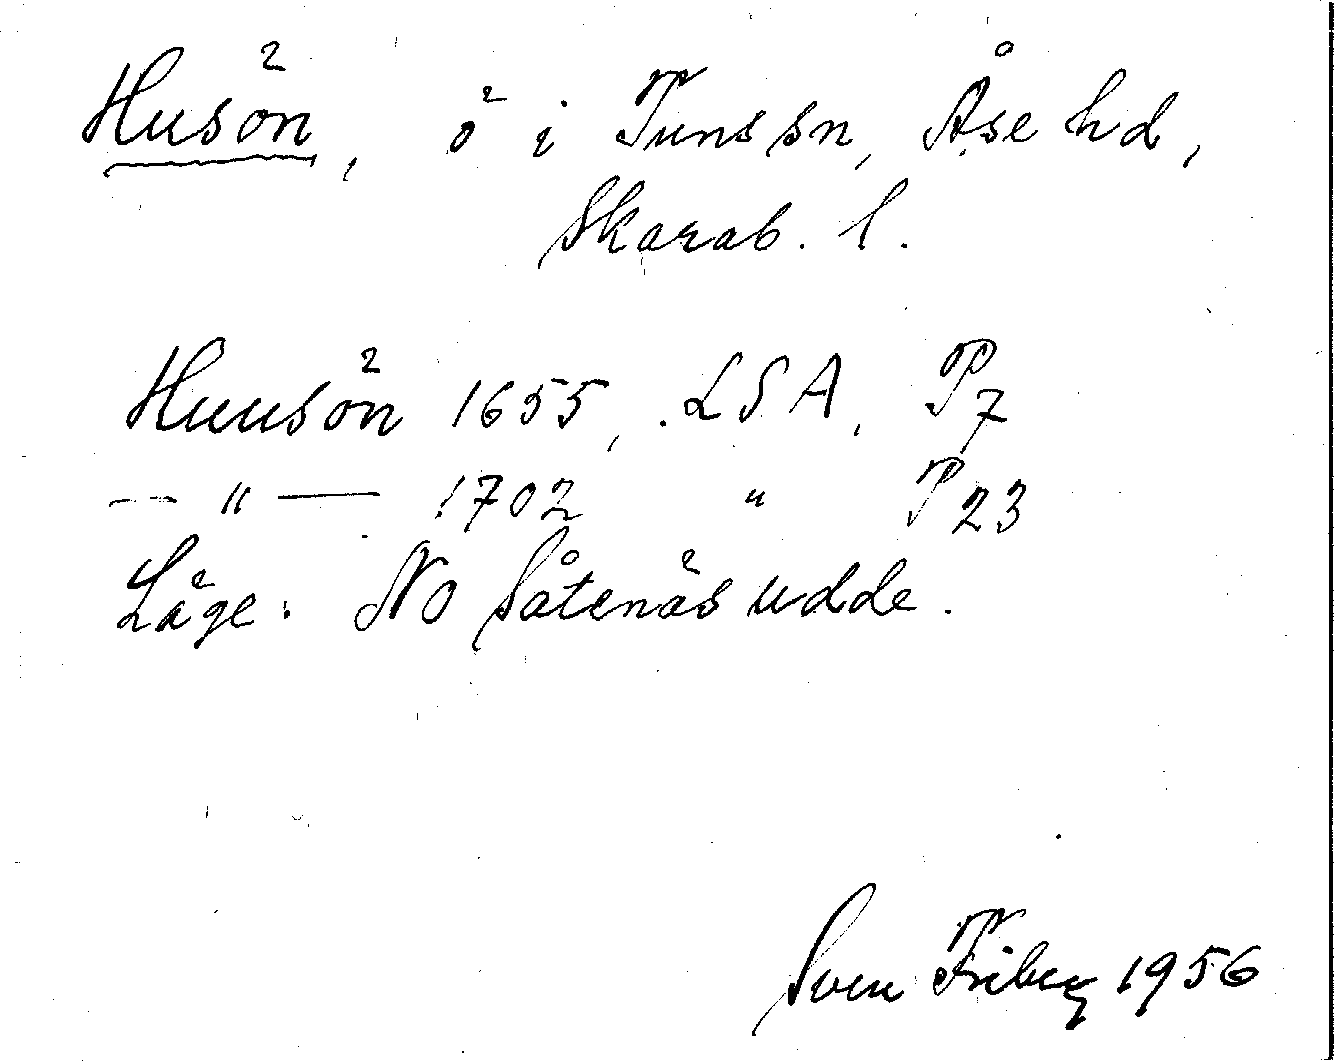 Husön, ö i Tuns sn, Åse hd,
Skarab. l.
Huusön 1655, LSA, P7
— " — 1702 " P23
Läge: NO Såtenäs udde.
Sven Friberg 1956